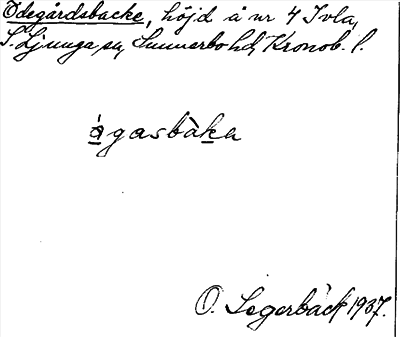 Ödegårdsbacke, höjd å nr 4 Ivla,
S. Ljunga sn, Sunnerbo hd, Kronob. l.
ágasbàka
O. Segerbäck 1937.